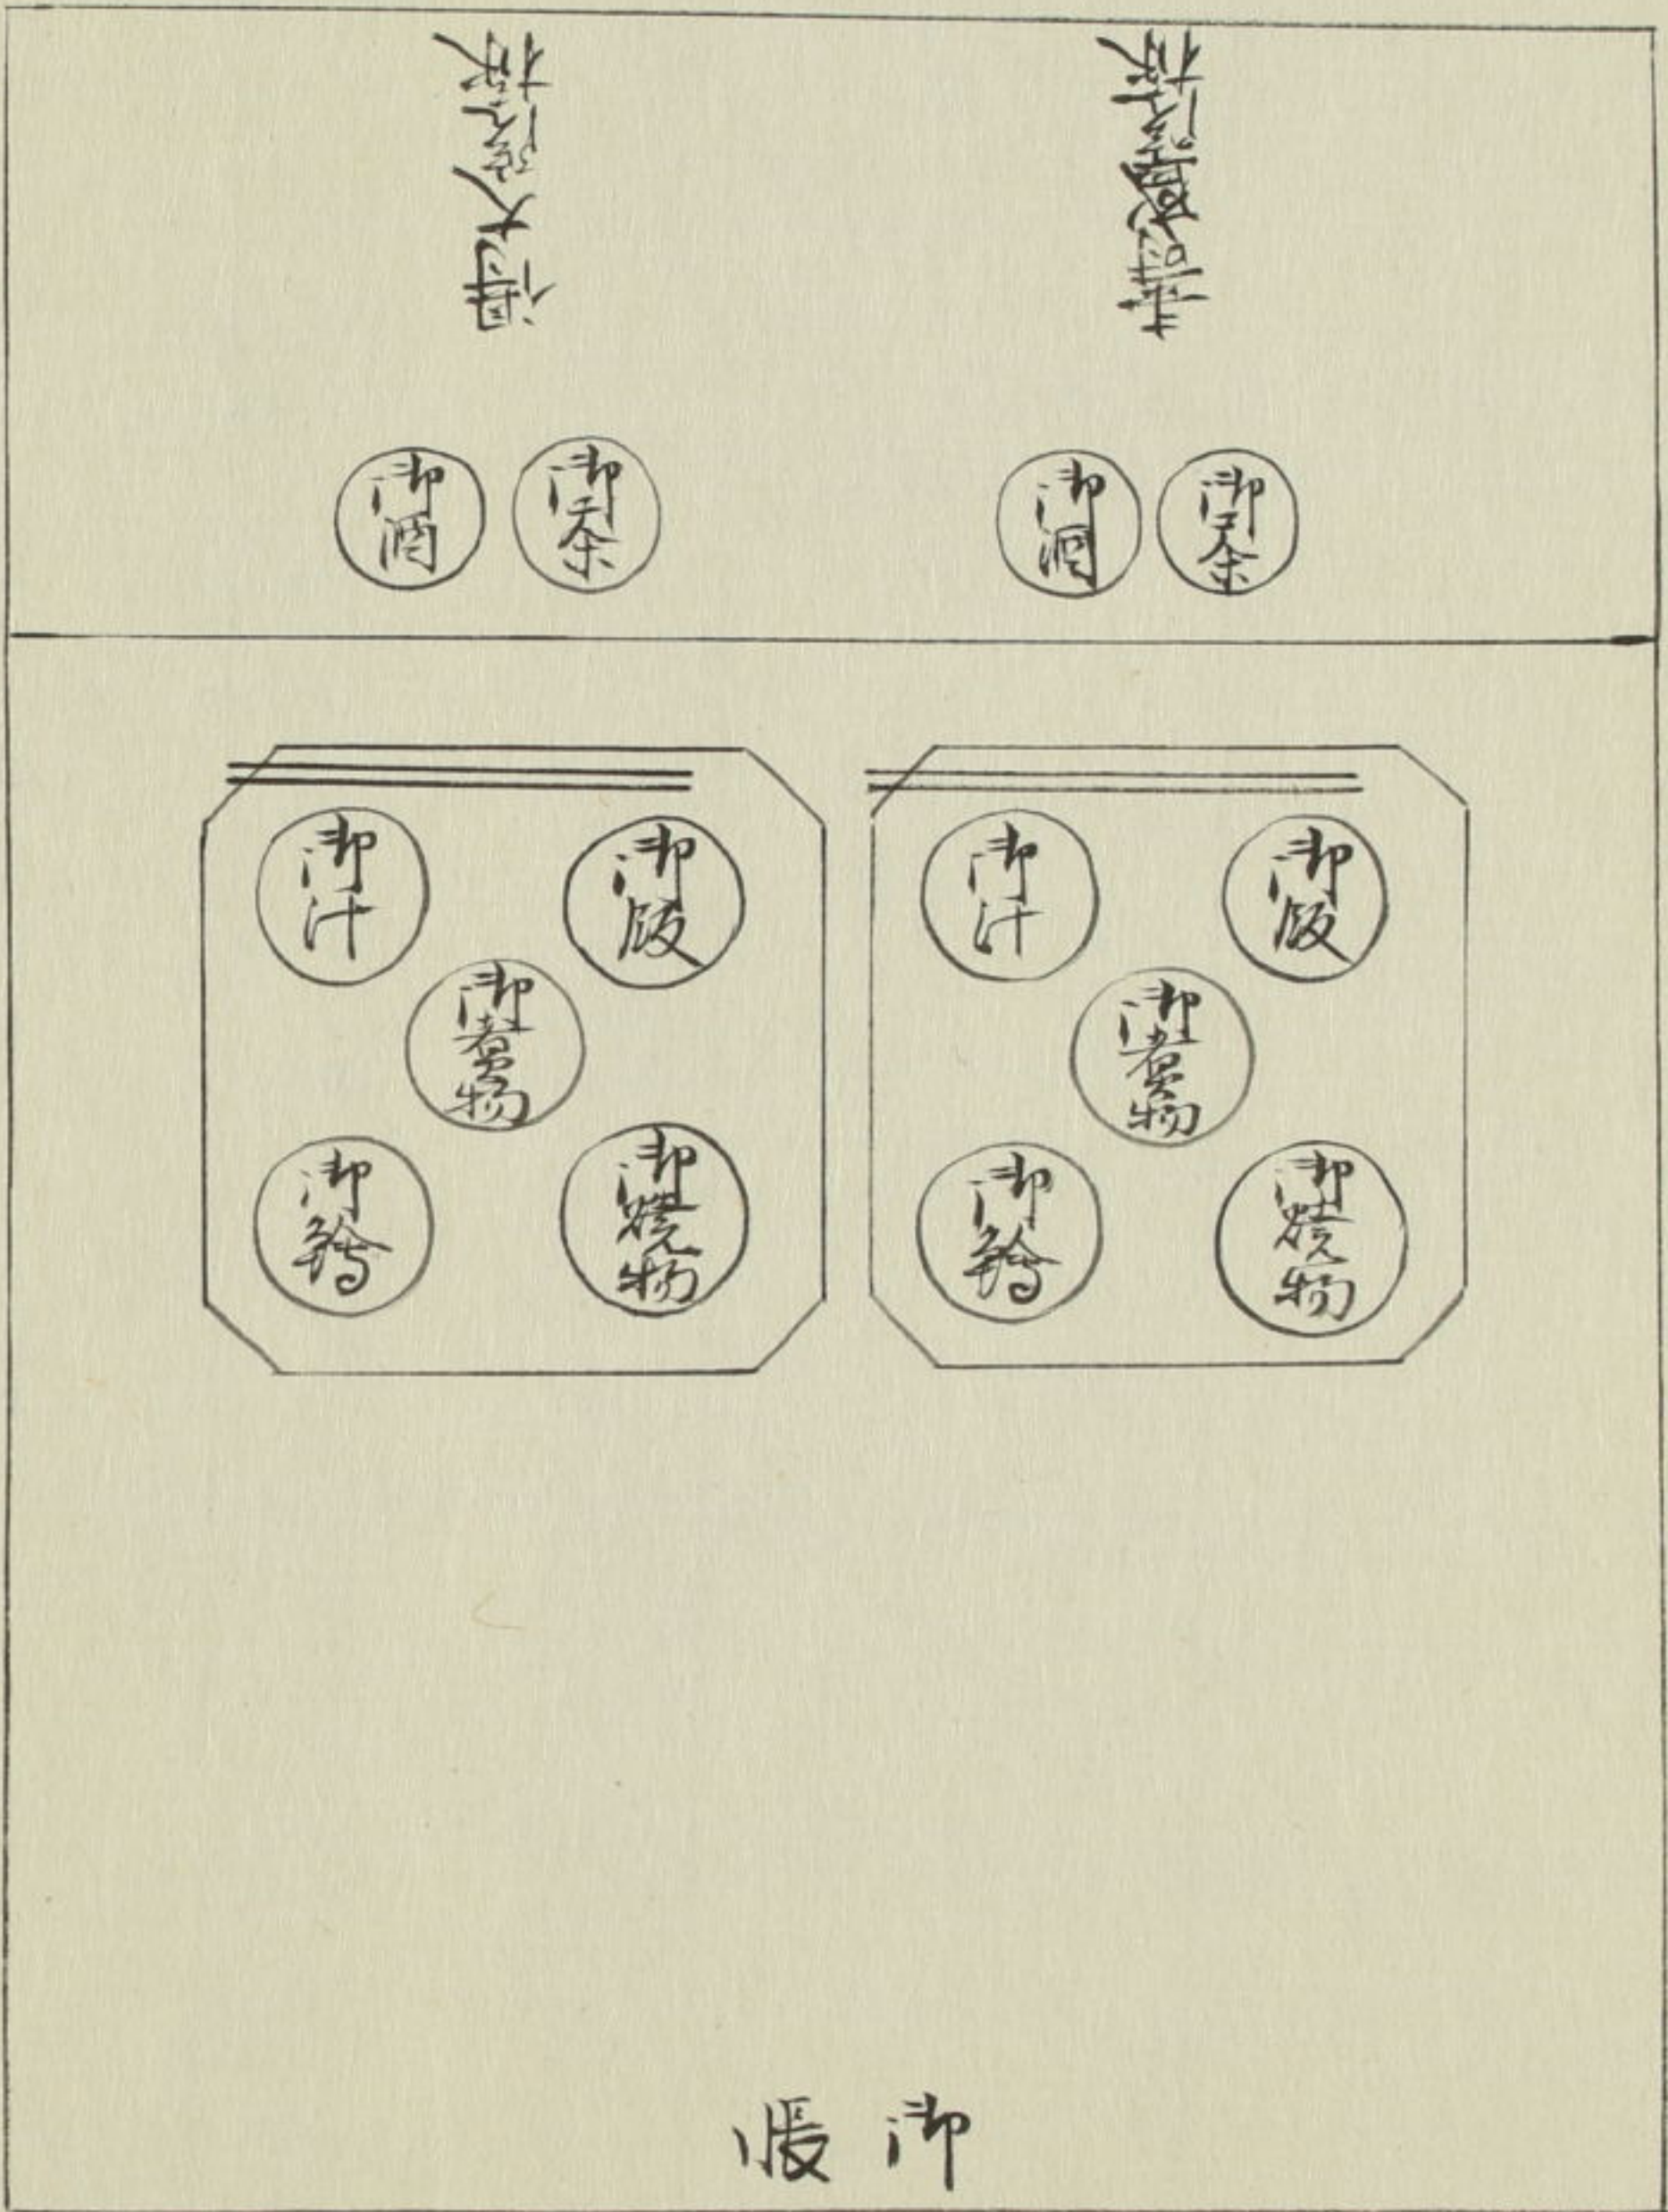 得大院様
御茶
御酒
御茶
御酒
御飯
御汁
御煮物
御焼物
御鱠
御飯
御汁
御煮物
御焼物
御鱠
御帳